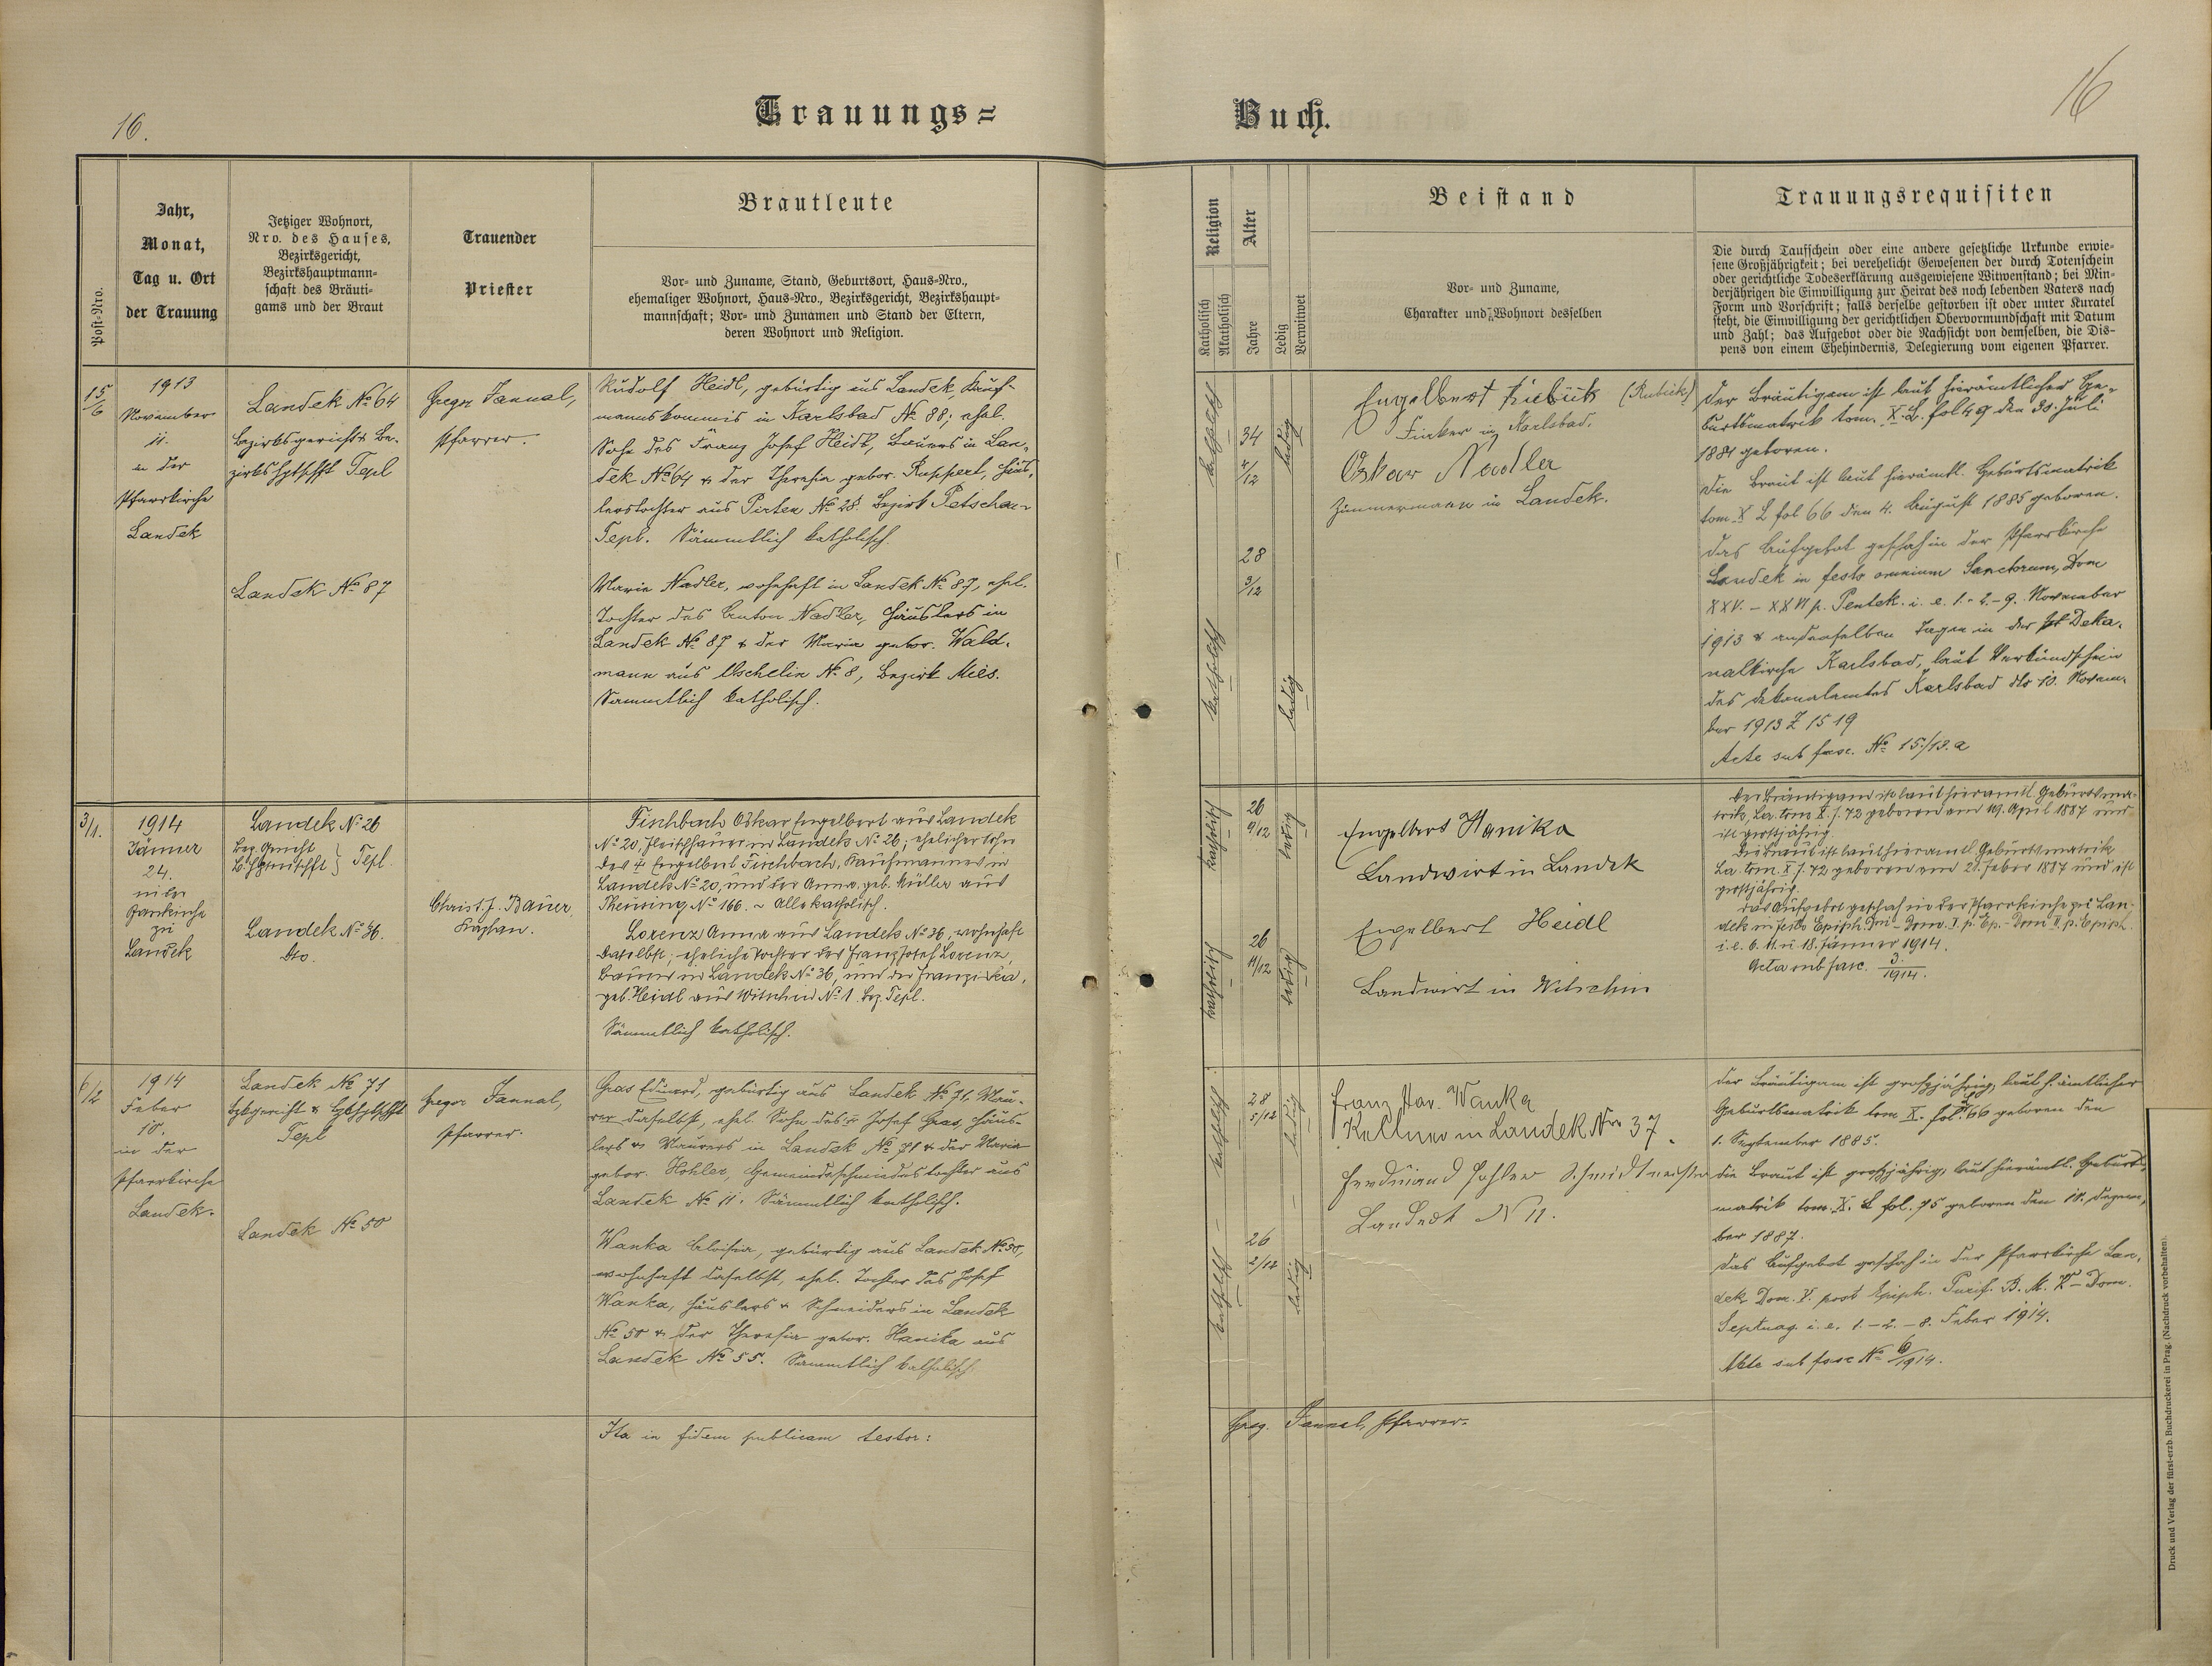 16.
Trauungs=
Post-Nro.
Jahr,
Monat,
Tag u. Ort
der Trauung
Jetziger Wohnort,
Nro. des Hauses,
Bezirksgericht,
Bezirkshauptmann-
schaft des Bräuti-
gams und der Braut
Trauender
Priester
Brautleute
Vor- und Zuname, Stand, Geburtsort, Haus-Nro.,
ehemaliger Wohnort, Haus-Nro., Bezirksgericht, Bezirkshaupt-
mannschaft; Vor- und Zunamen und Stand der Eltern,
deren Wohnort und Religion.
15/6
1913
November
11.
in der
Pfarrkirche
Landek
Landek No 64
Bezirksgericht & Be-
zirkshptschft Tepl
Landek No 87
Gregor Fannal,
Pfarrer.
Rudolf Heidl, gebürtig aus Landek, Kauf-
mannskommis in Karlsbad No 88; ehel.
Sohn des Franz Josef Heidl, Bauers in Lan-
dek No 64 & der Theresia gebor. Ruppert, Häus-
lerstochter aus Pirten No 28 Bezirk Petschau-
Tepl. Sämmtlich katholisch.
Maria Nadler, wohnhaft in Landek No 87, ehel.
Tochter des Anton Nadler, Häuslers in
Landek No 87 & der Maria gebor. Wald-
mann aus Uschelin No 8, Bezirk Mies.
Sämmtlich katholisch.
3/1.
1914
Jänner
24.
in der
Pfarrkirche
zu
Landek
Landek No 26
Bez. Gericht
B. Hptmschft } Tepl.
Landek No 36.
dto.
Christ. J. Bauer,
Kaplan.
Fischbach Oskar Engelbert aus Landek
No 20, Fleischhauer in Landek No 26; ehelicher Sohn
des Engelbert Fischbach, Kaufmannes in
Landek No 20, und der Anna, geb. Müller aus
Theusing No 166. ~ Alle katholisch.
Lorenz Anna aus Landek No 36, wohnhaft
daselbst; eheliche Tochter des Franz Josef Lorenz,
Bauers in Landek No 36, und der Franziska,
geb. Heidl aus Witschin No 1. Bez. Tepl.
Sämmtlich katholisch.
6/2
1914
Feber
10.
in der
Pfarrkirche
Landek.
Landek No 71
Bzkgericht & Bzkhptschft
Tepl
Landek No 50
Gregor Fannal,
Pfarrer.
Gras Eduard, gebürtig aus Landek No 71, Mau-
rer daselbst, ehel. Sohn des Josef Gras, Häus-
lers & Maurers in Landek No 71 & der Maria
gebor. Hohler, Gemeindeschmiedestochter aus
Landek No 11. Sämmtlich katholisch.
Wanka Aloisia, gebürtig aus Landek No 50,
wohnhaft daselbst, ehel. Tochter des Josef
Wanka, Häuslers & Schneiders in Landek
No 50 & der Theresia gebor. Hanika aus
Landek No 55. Sämmtlich katholisch.
Ita in fidem publicam testor:
16
Buch.
Religion
Katholisch
Akatholisch
Alter
Jahre
Ledig
Verwitwet
Beistand
Vor- und Zuname,
Charakter und Wohnort desselben
Trauungsrequisiten
Die durch Taufschein oder eine andere gesetzliche Urkunde erwie-
sene Großjährigkeit; bei verehelicht Gewesenen der durch Totenschein
oder gerichtliche Todeserklärung ausgewiesene Witwenstand; bei Min-
derjährigen die Einwilligung zur Heirat des noch lebenden Vaters nach
Form und Vorschrift; falls derselbe gestorben ist oder unter Kuratel
steht, die Einwilligung der gerichtlichen Obervormundschaft mit Datum
und Zahl; das Aufgebot oder die Nachsicht von demselben, die Dis-
pens von einem Ehehindernis, Delegierung vom eigenen Pfarrer.
katholisch
34
4/12
ledig
katholisch
28
3/12
ledig
Engelbert Rubick (Rubick)
Fiaker in Karlsbad.
Oskar Nadler
Zimmermann in Landek.
Der Bräutigam ist laut hierämtlicher Ge-
burtsmatrik tom. X. L. fol 49 den 30. Juli
1881 geboren.
Die Braut ist laut hierämtl. Geburtsmatrik
tom. X L fol 66 den 4. August 1885 geboren.
Das Aufgebot geschah in der Pfarrkirche
Landek in festo omnium Sanctorum, Dom
XXV. - XXVI p. Pentek. i. e. 1. - 2. - 9. November
1913 & an denselben Tagen in der Deka-
nalkirche Karlsbad, laut Verkündschein
des Dekanalamtes Karlsbad dto 10. Novem-
ber 1913 Z 1519
Acte sub fasc. No 15./13.a
katholisch
26
9/12
ledig
katholisch
26
11/12
ledig
Engelbert Hanika
Landwirt in Landek
Engelbert Heidl
Landwirt in Witschin
Der Bräutigam ist laut hieramtl. Geburtsma-
trik, La. tom X. f. 72 geboren am 19. April 1887 und
ist großjährig.
Die Braut ist laut hieramtl. Geburtsmatrik
La. tom. X f. 72 geboren am 21. Feber 1887 und ist
großjährig.
Das Aufgebot geschah in der Pfarrkirche zu Lan-
dek in festo Epiph. Dni - Dom. I. p. Ep. - Dom II. p. Epiph.
i. e. 6. 11. u. 18. Jänner 1914.
Acta sub fasc. 3./1914.
katholisch
28
5/12
ledig
katholisch
26
2/12
ledig
Franz Xav. Wanka
Kellner in Landek Nro 37.
Ferdinand Hohler Schmidtmeister
Landek N 11.
Der Bräutigam ist großjährig, laut h. ämtlicher
Geburtsmatrik tom X. fol. 66 geboren den
1. September 1885.
Die Braut ist großjährig, laut hierämtl. Geburts-
matrik tom. X. L fol. 75 geboren den 10. Dezem-
ber 1887.
Das Aufgebot geschah in der Pfarrkirche Lan-
dek Dom. V. post Epiph. Purif. B. M. V - Dom.
Septuag. i. e. 1. - 2. - 8. Feber 1914.
Akte sub fasc No 6/1914.
Greg. Fannal, Pfarrer.
Druck und Verlag der fürst-erzb. Buchdruckerei in Prag. (Nachdruck vorbehalten).